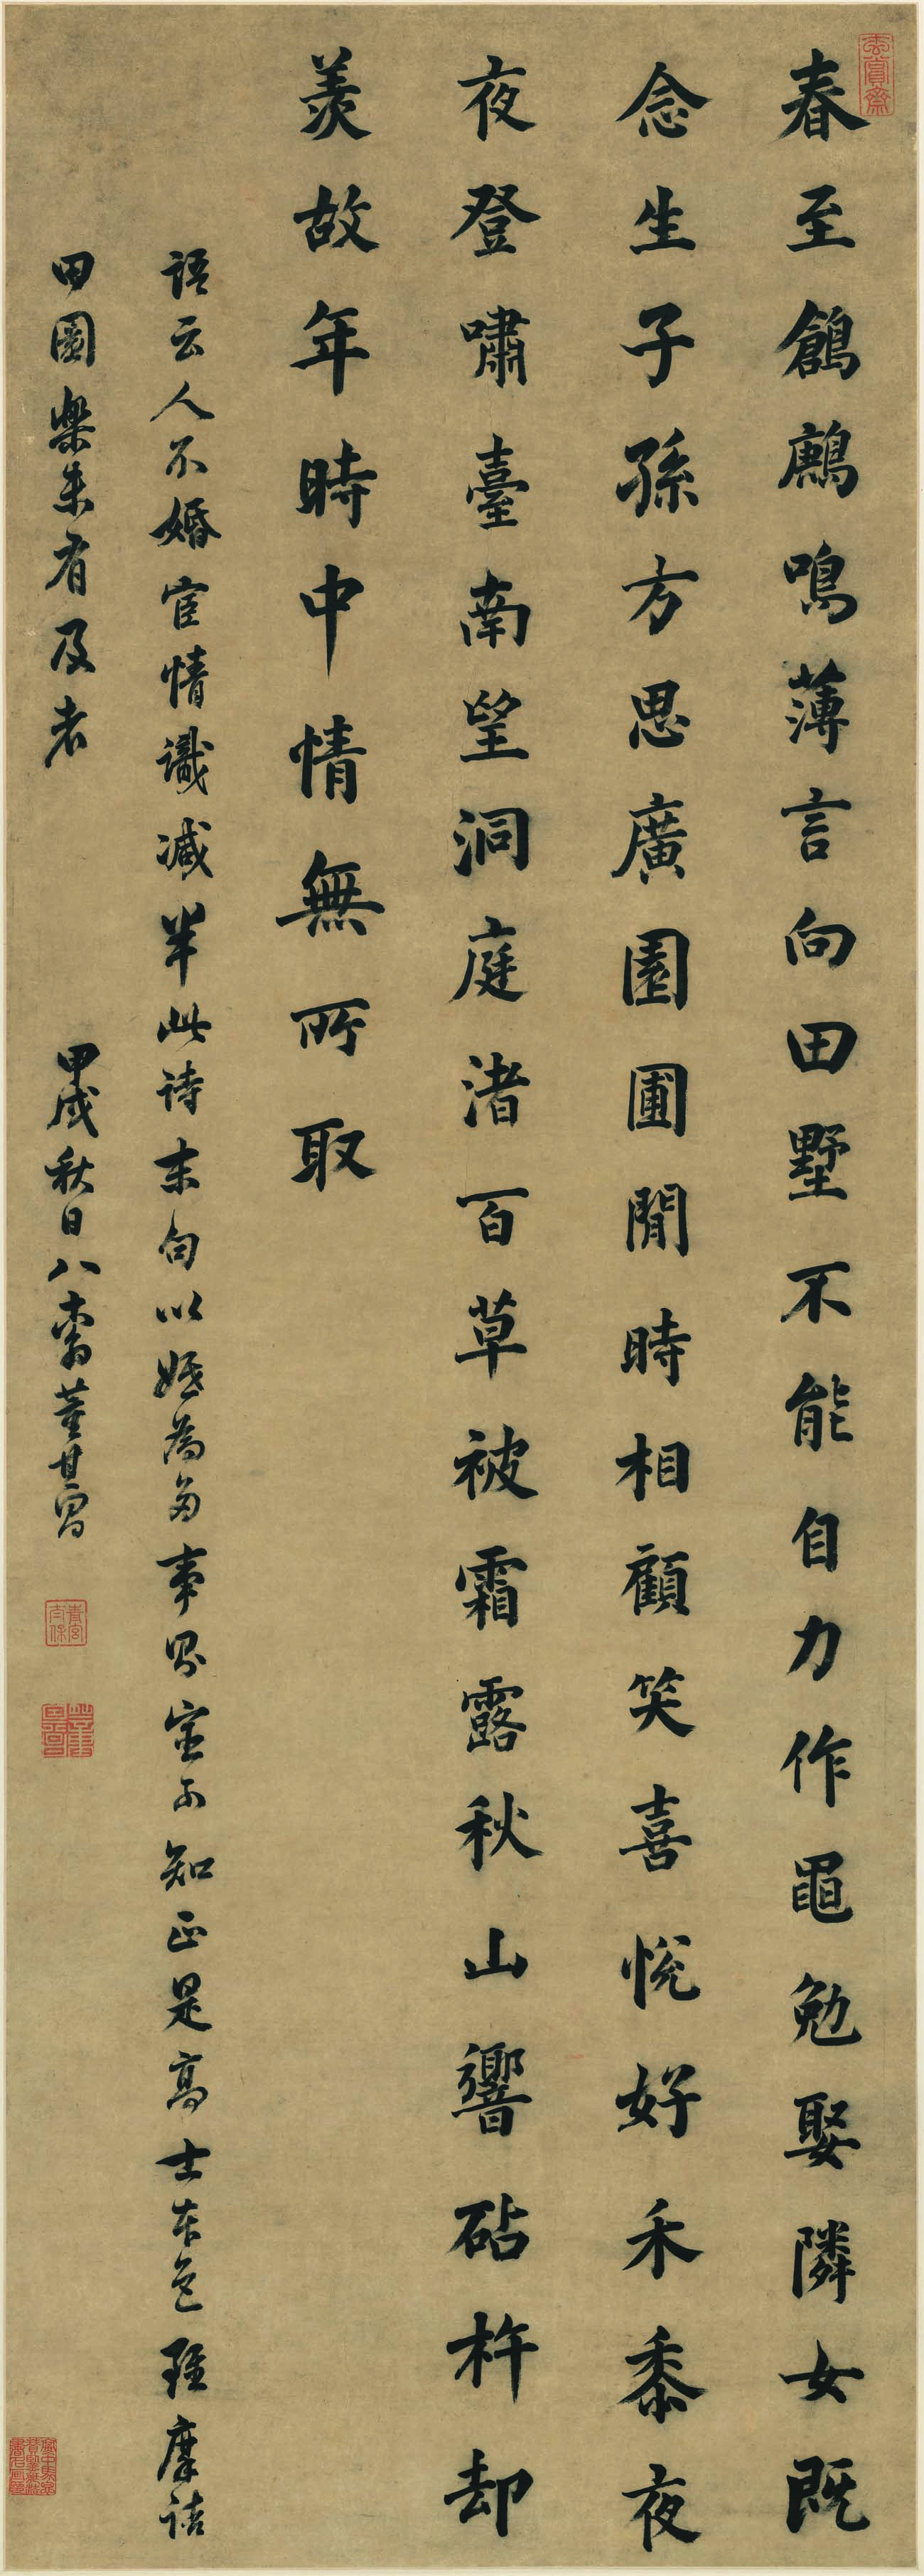 玄賞齋
春至鶬鶊鳴薄言向田墅不能自力作黽勉娶隣女既
念生子孫方思廣園圃閒時相顧笑喜悅好禾黍夜
夜登嘯臺南望洞庭渚百草被霜露秋山響砧杵却
羨故年時中情無所取
語云人不婚宦情識减半此诗末句以為多事知正是高士本色雖摩詰
田園樂未有及者 甲戌秋日八十翁董其昌
青宮太保
董其昌